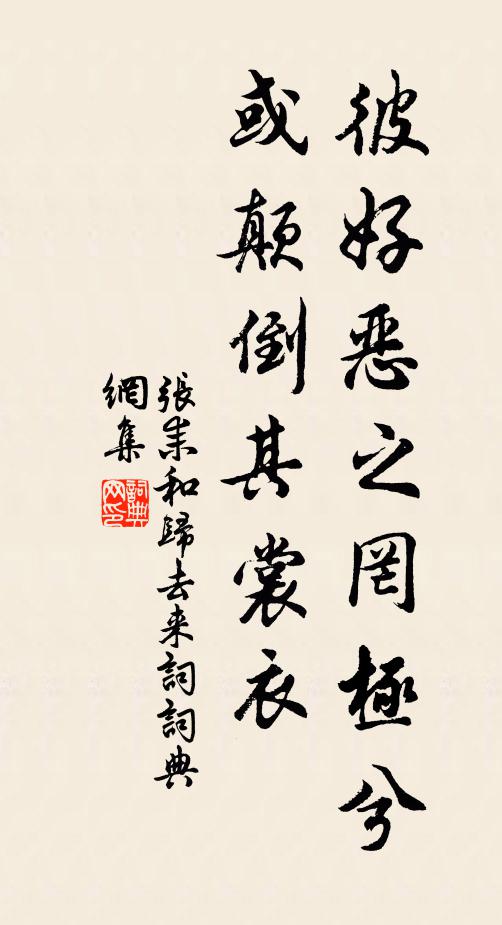 彼好恶之罔極兮
或颠倒其裳衣
張耒和歸去来詞詞典
網集
詞典
网印